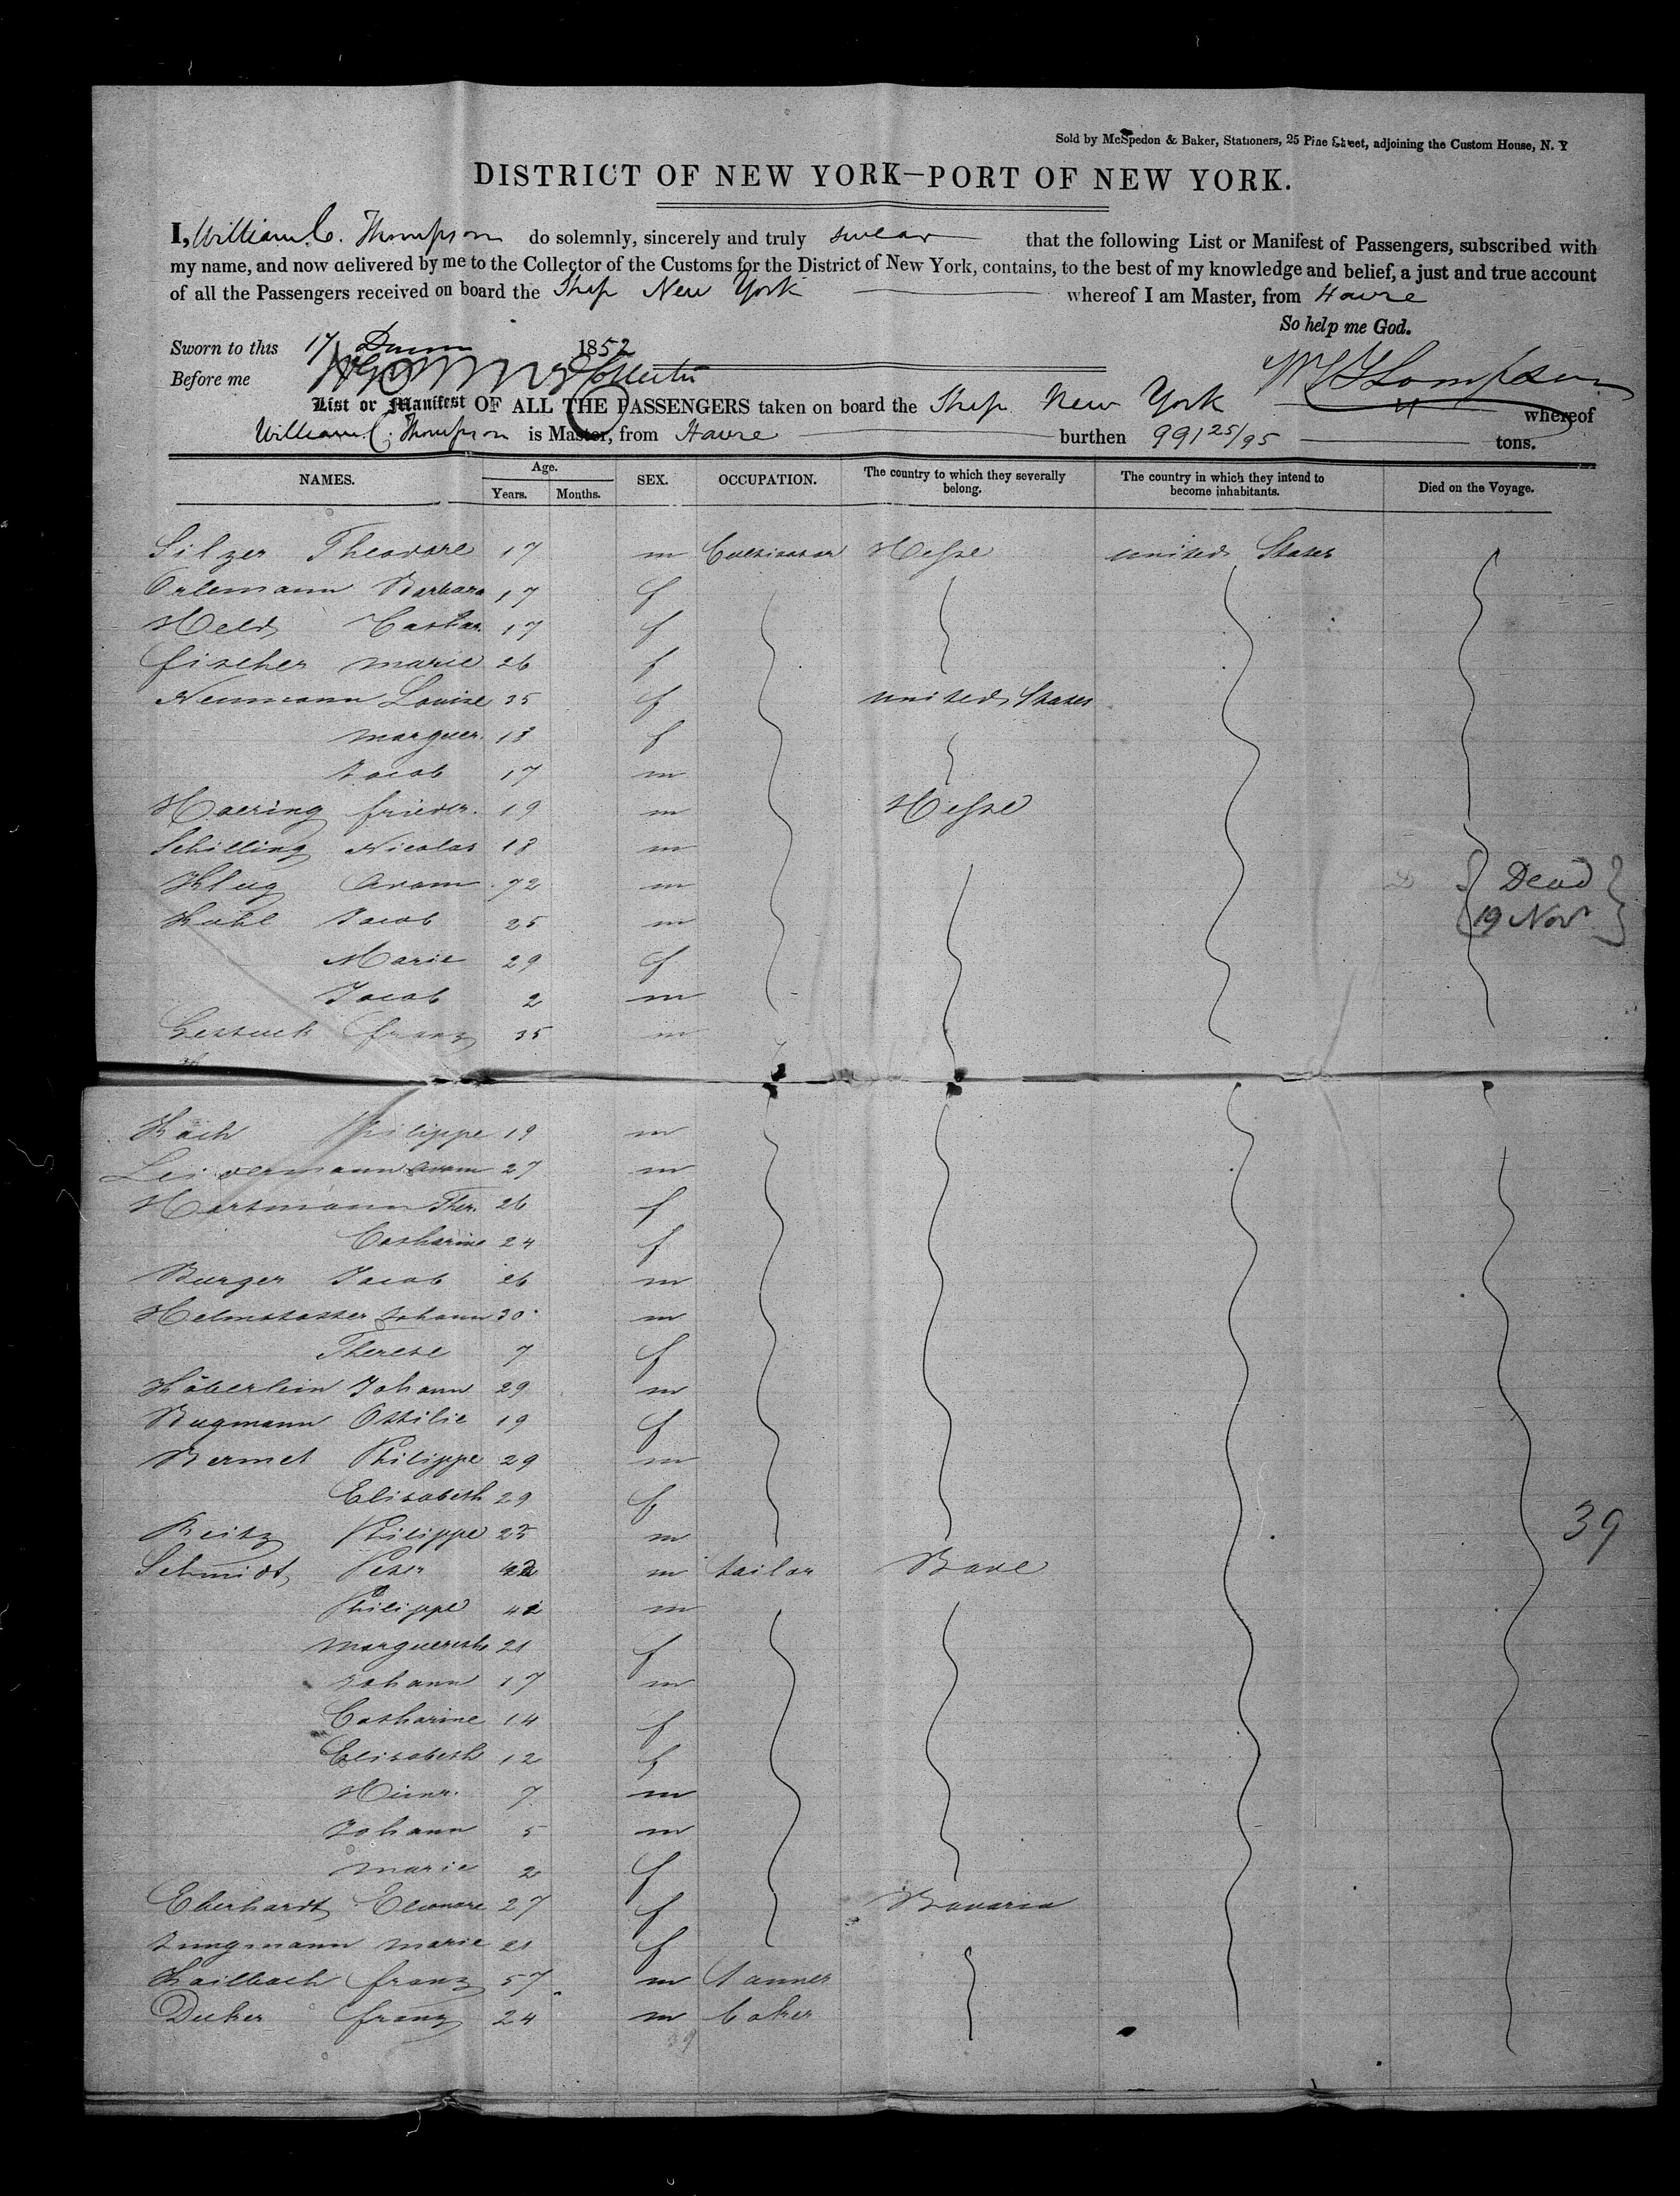 Sold by McSpedon & Baker, Stationers, 25 Pine Street, adjoining the Custom House, N. Y
DISTRICT OF NEW YORK—PORT OF NEW YORK.
I, William C. Thompson do solemnly, sincerely and truly swear that the following List or Manifest of Passengers, subscribed with
my name, and now delivered by me to the Collector of the Customs for the District of New York, contains, to the best of my knowledge and belief, a just and true account
of all the Passengers received on board the Ship New York whereof I am Master, from Havre
So help me God.
Sworn to this 17 1852
Before me
Wm C Thompson
List or Manifest OF ALL THE PASSENGERS taken on board the Ship New York whereof
William C. Thompson is Master, from Havre burthen 991 25/95 tons.
NAMES. Age. Years. Months. SEX. OCCUPATION. The country to which they severally belong. The country in which they intend to become inhabitants. Died on the Voyage.
Silzer Theodore 17 m Cultivator Hesse United States
Orlemann Barbara 17 f
Held Cathar. 17 f
fischer marie 26 f
Neumann Louise 35 f united States
marguer. 18 f
Jacob 17 m
Haering frieder. 19 m Hesse
Schilling Nicolas 18 m
Klug Adam 72 m Dead
Kuhl Jacob 25 m 19 Novr
Marie 29 f
Jacob 2 m
franz 35 m
Koch Philippe 19 m
Leidermann Adam 27 m
Hartmann Ther. 26 f
Catharine 24 f
Burger Jacob 26 m
Helmstatter Johann 30 m
Therese 7 f
Häberlein Johann 29 m
Bugmann Ottilie 19 f
Bermet Philippe 29 m
Elisabeth 29 f
Reitz Philippe 25 m 39
Schmidt Peter 42 m tailor Bade
Philippe 42 m
Marguereth 21 f
Johann 17 m
Catharine 14 f
Elisabeth 12 f
Heinr. 7 m
Johann 5 m
marie 2 f
Eberhardt Eleonore 27 f Bavaria
Jungmann marie 21 f
Kailbach franz 57 m tanner
Ducker franz 24 m baker
39